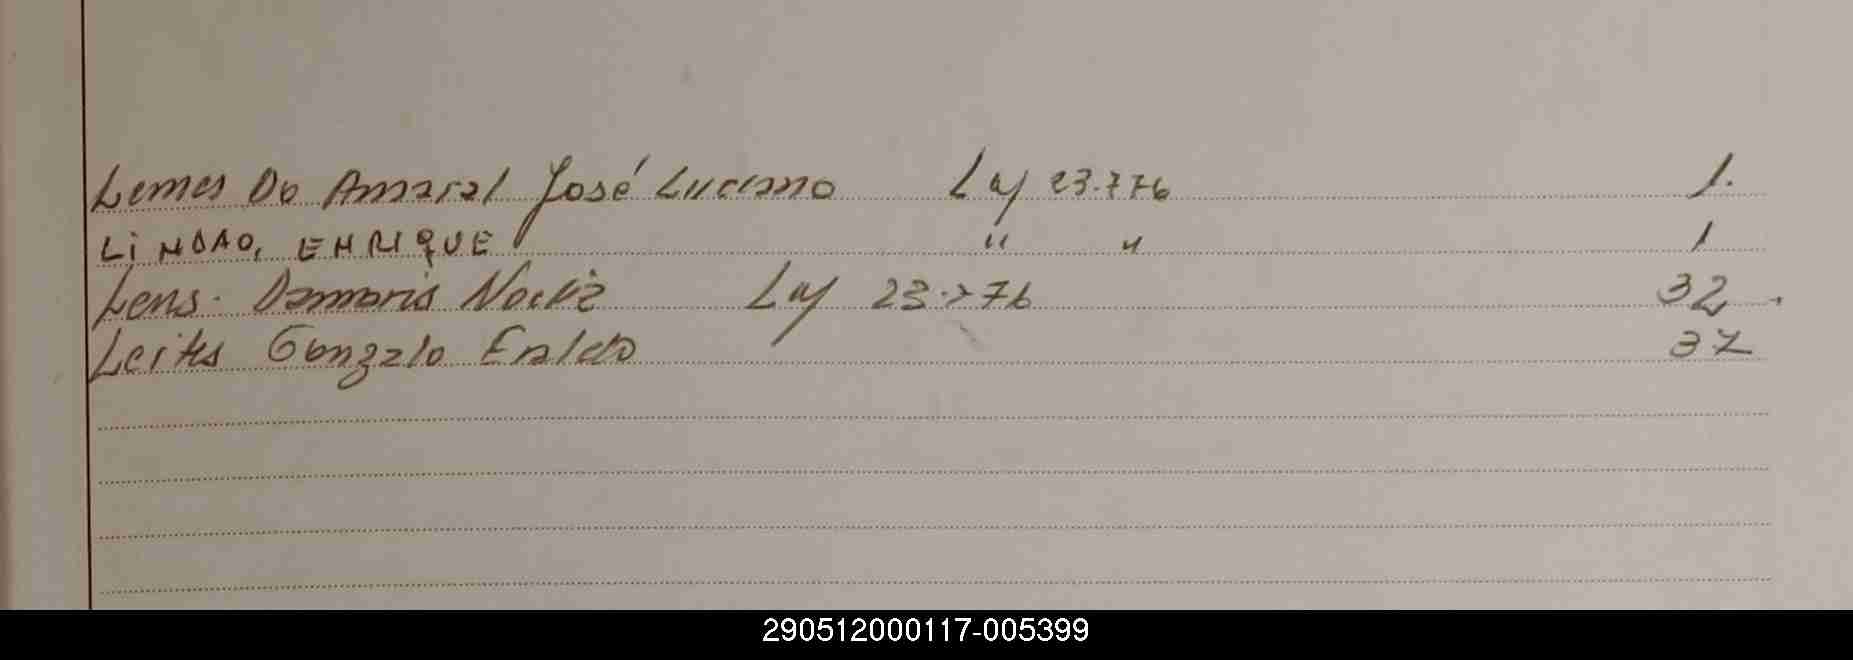 Lemes Do Amaral José Luciano Ley 23.776 1.
LINDAO, ENRIQUE " " 1
Lens. Damaris Noeliz Ley 23.776 32.
Leites Gonzalo 37
290512000117-005399